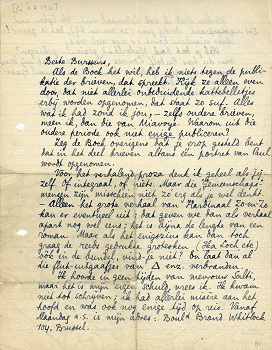 Beste Bursseus,
Als de Bock het wil, heb ik niets tegen de publi-
katie der brieven, dat spreekt. Kijk ze alleen even
door, dat niet allerlei onbeduidende kattebelletjes
erbij worden opgenomen, dat staat zo suf. Alles
was ik had zond ik jou, — zelfs oudere brieven,
meen ik, dan die van Miavoye. Waarom uit die
oudere periode ook niet enige publiceren?
Zeg de Bock overigens dat je erop gesteld bent
dat in het deel brieven althans één portret van Paul
wordt opgenomen.
Voor het verhalend proza denk ik geheel als jij-
zelf. Of integraal, òf niet. Maar die gemeenschaps-
mensen zijn misschien niet zo erg als je wel denkt.
— Alleen het grote verhaal van Mardinaal Zo en Zo
kan er eventueel uit; dat geven we dan als verhaal
apart nog wel eens; het is bijna de lengte van een
roman. Maar als het enigszins kan dan toch
graag de reeds gedrukte grotesken (Eka Loch etc)
ook in de bundel, vind-je niet? En laat dan al
die fluit-uitgaafjes van Δ enz. verbranden.
Ik hoorde in geen tijden van mevrouw Salet,
maar het is mijn eigen schuld, vrees ik. Ik kwam
niet tot schrijven; ik had allerlei misère aan het
hoofd en was ook nog enige tijd op reis. Vanaf
Maandag a.s. is mijn adres: Boulᵈ Brand Whitlock
104, Brussel.